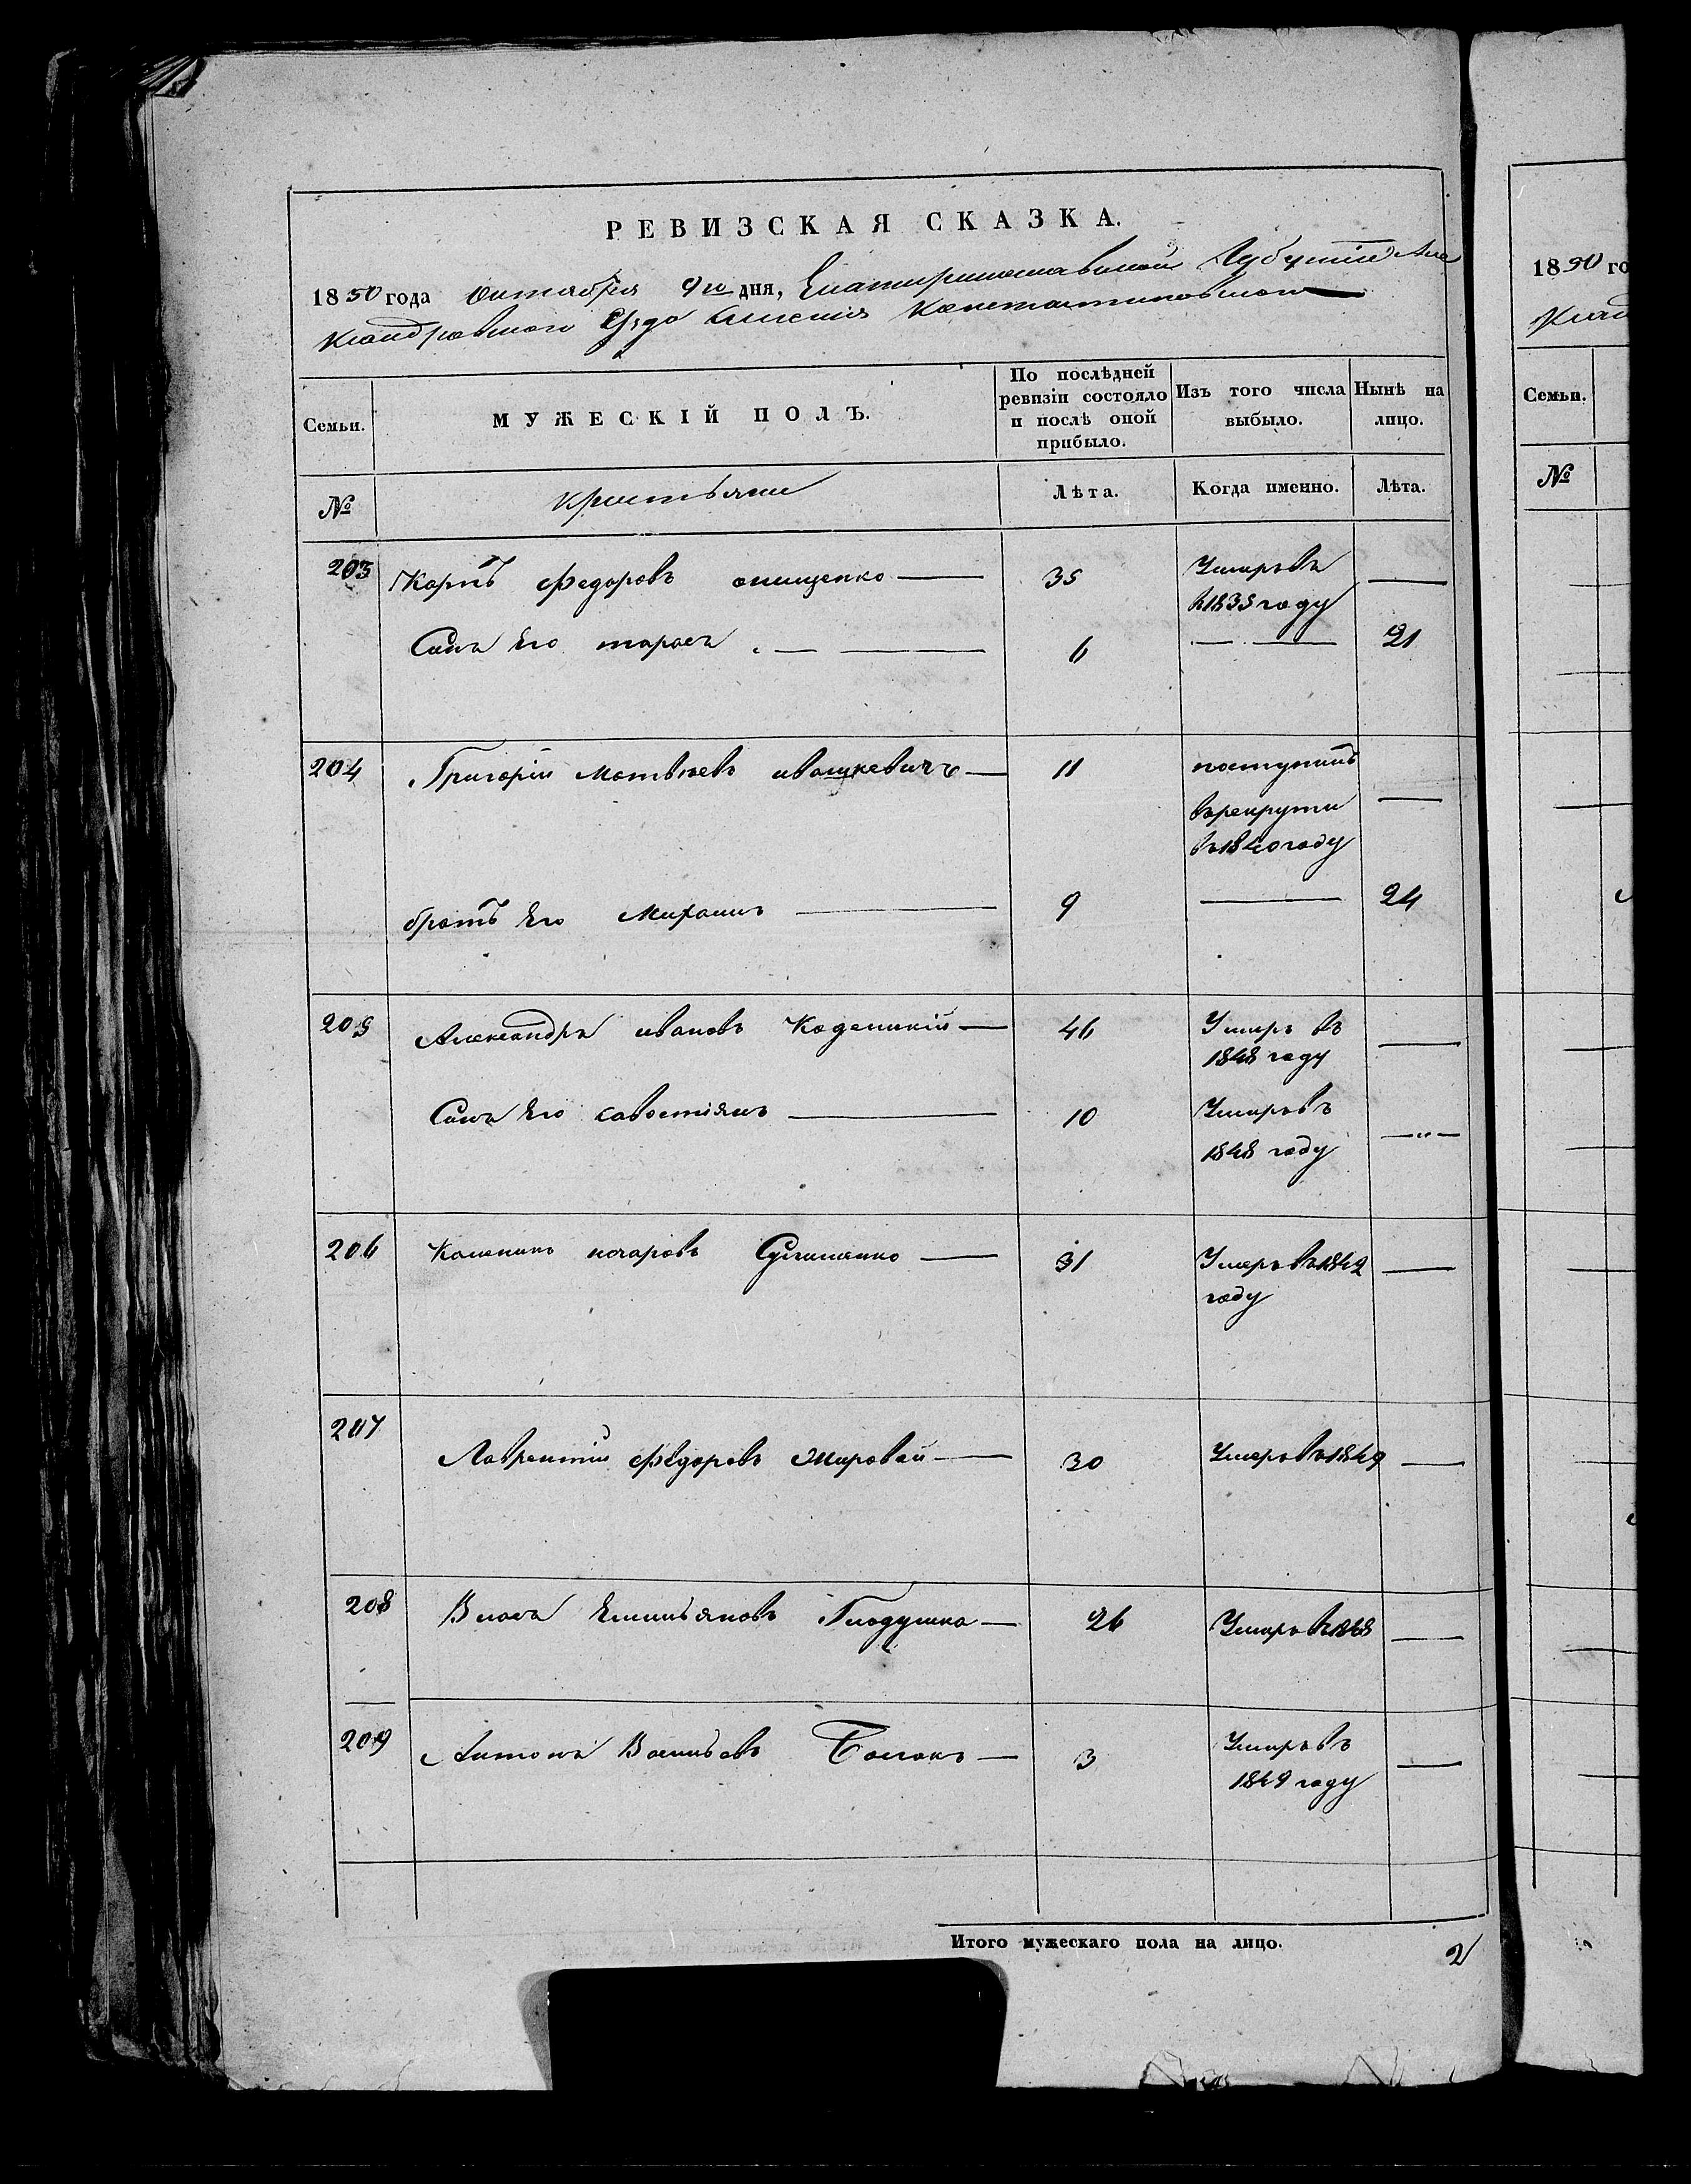 РЕВИЗСКАЯ СКАЗКА.
1850 года Октября 9го дня, Екатеринославской Губерніи Але
ксандровского Уезда Имения Константиновского
Семьи.
МУЖЕСКІЙ ПОЛЪ.
По послѣдней ревизіи состояло и послѣ оной прибыло.
Изъ того числа выбыло.
Нынѣ на лицо.
№
Крестьяне
Лѣта.
Когда именно.
Лѣта.
203 Карпъ Федоровъ онищенко 35 Умеръ въ
в1835 году
Сынъ Его тарасъ 6 21
204 Григорій Матвѣевъ ивашкевичъ 11 поступилъ
въ рекруты
въ 1840 году
братъ Его Михаилъ 9 24
205 Александръ ивановъ 46 Умеръ въ
1848 году
Сынъ Его савостіянъ 10 Умеръ въ
1848 году
206 Каленикъ 31 Умеръ въ 1842
году
207 Лаврентій Федоровъ Жировай 30 Умеръ въ 1849
208 Власъ Емильяновъ Гладушка 26 Умеръ въ 1848
209 Антонъ Васильевъ 3 Умеръ въ
1849 году
Итого мужескаго пола на лицо. 2
1850 го
Ксанд
Семьи.
№